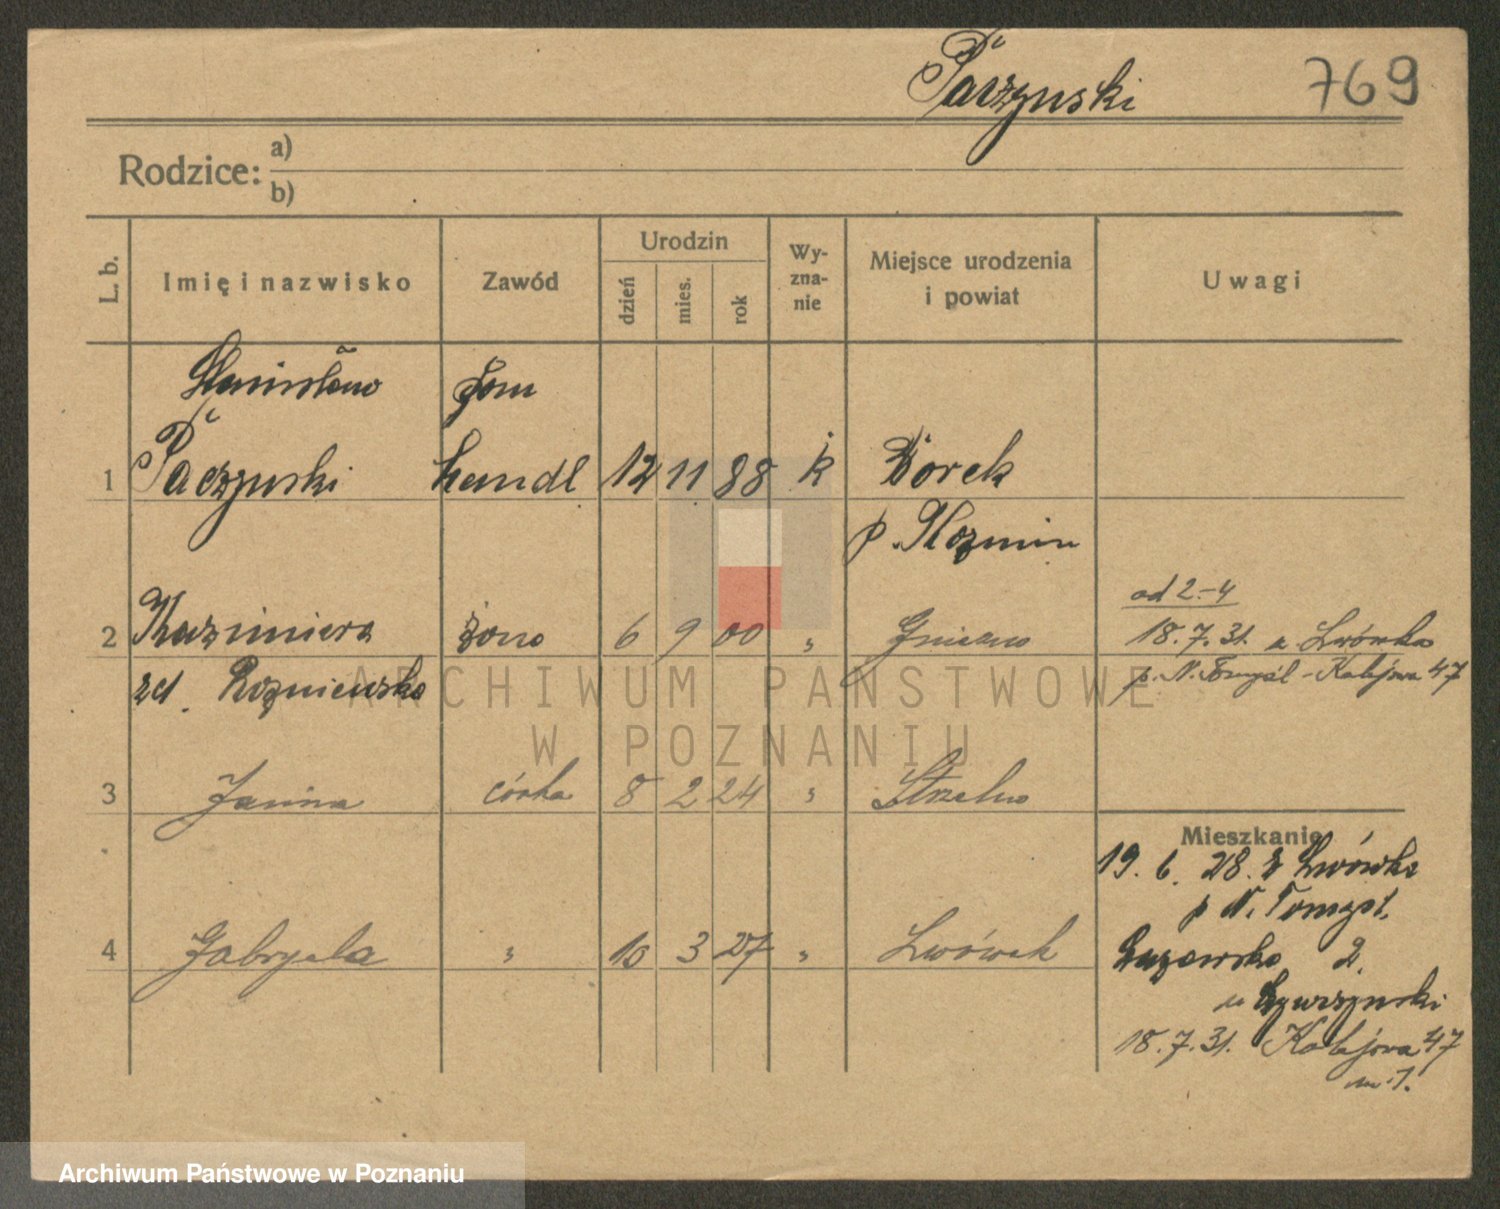 Paczyński
769
Rodzice: a)
b)
L. b.
Imię i nazwisko
Zawód
Urodzin
dzień
mies.
rok
Wy-
zna-
nie
Miejsce urodzenia
i powiat
Uwagi
Stanisław
Pom
1 Paczyński handl 12 11 88 k Borek
p. Kozmin
od 2.-4
2 Kazimiera żona 6 9 00 " Gniezno 18.7.31. z Lwówka
zd. p. N. Tomyśl - Kolejowa 47
3 Janina córka 8 2 24 " Strzelno
Mieszkanie
19. 6. 28. z Lwówka
p N. Tomyśl.
4 Gabryela " 10 3 27 " Lwówek
2.
u
18.7.31. Kolejowa 47
m 1.
ARCHIWUM PAŃSTWOWE
W POZNANIU
Archiwum Państwowe w Poznaniu